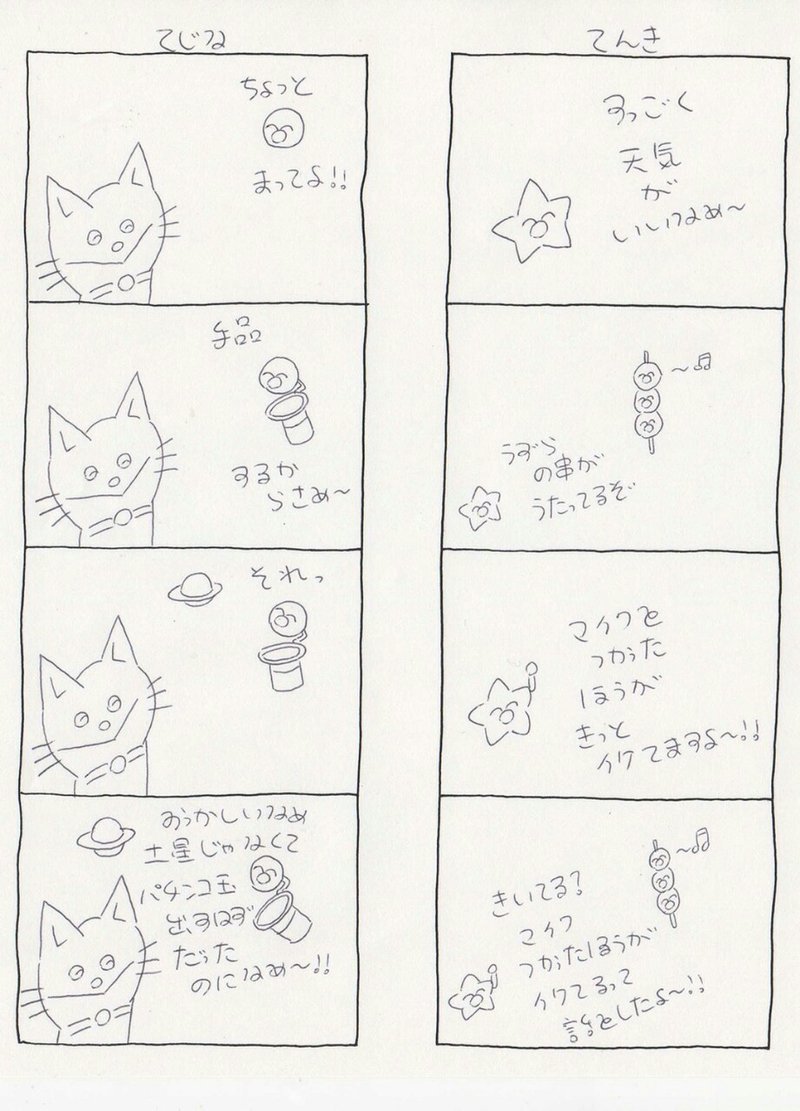 てんき
すっごく
天気
が
いいなぁ〜
うずら
の串が
うたってるぞ
マイクを
つかった
ほうが
きっと
イケてますよ〜!!
きいてる?
マイク
つかったほうが
イケてるって
話をしたよ〜!!
てじな
ちょっと
まってよ!!
手品
するか
らさぁ〜
それっ
おっかしいなぁ
土星じゃなくて
パチンコ玉
出すはず
だった
のになぁ〜!!